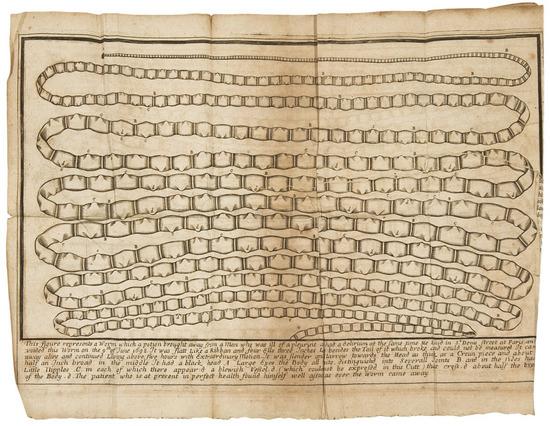 This figure represents a Worm which a potion brought away from a Man who was ill of a pleurisy and had a delirium at the same time He liv'd in St Denis Street at Paris and
voided this Worm on the of June it was flat Like a Ribban and four Ells three Inches Long besides the Tail of it which broke and could not be measured It came
away alive and continued Living above five hours with Extraordinary Motion. It was slender and narrow towards the Head as thick as a Crown piece and about
half an Inch broad in the middle it had a black head and Large Eyes the Body all was distinguish'd into Severall Joints B and in the sides had
Little Nipples .C. in each of which there appear'd a blewish Vessel d (which could not be expressed in this Cutt) that cross'd about half the
of the Body .d. The patient who is at present in perfect health found himself well as soon as ever the Worm came away